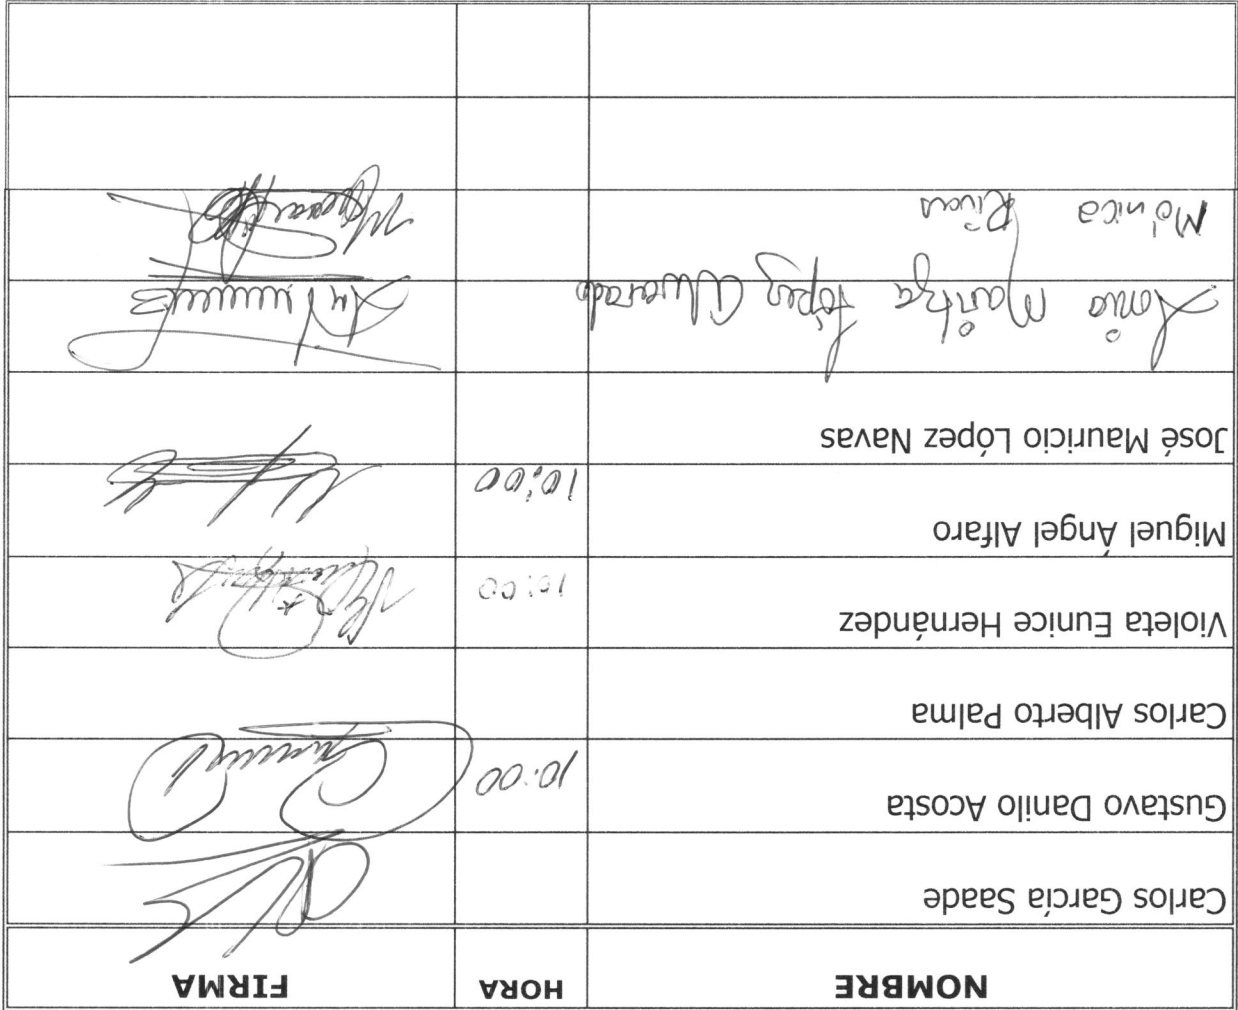 NOMBRE HORA FIRMA
Carlos García Saade
Gustavo Danilo Acosta 10:00
Carlos Alberto Palma
Violeta Eunice Hernández 10:00
Miguel Ángel Alfaro 10:00
José Mauricio López Navas
Sonia Maritza López Alvarado
Mónica Rivas